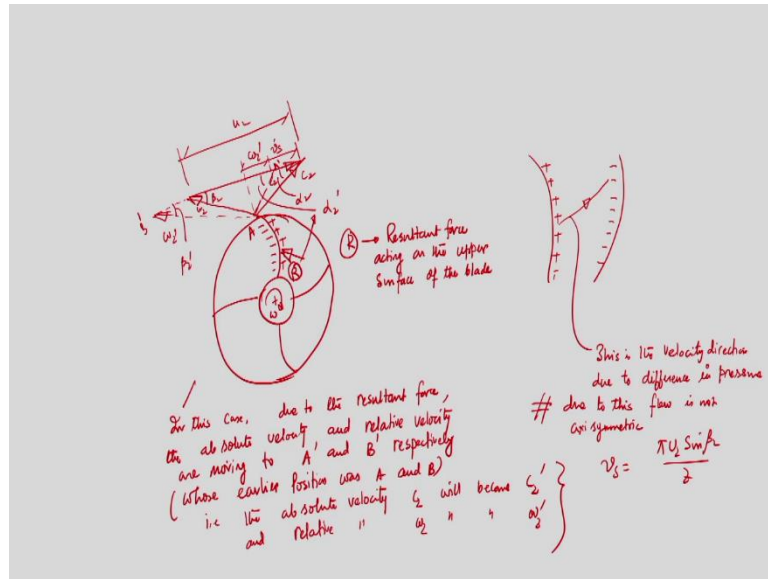 u₂
ω₂' v_s
c₂' c₂
α₂
α₂'
β₂
ω₂
ω₂'
β₂'
A
R
ω
R → Resultant force
acting on the upper
Surface of the blade
+ + + + + +
- - - - - -
This is the velocity direction
due to difference in pressure
# due to this flow is not
axi symmetric
v_s = πU₂ Sin β₂ / z
In this case, due to the resultant force,
the absolute velocity and relative velocity
are moving to A' and B' respectively
(whose earlier Position was A and B)
i.e the absolute velocity c₂ will become c₂'
and relative " ω₂ " " ω₂'